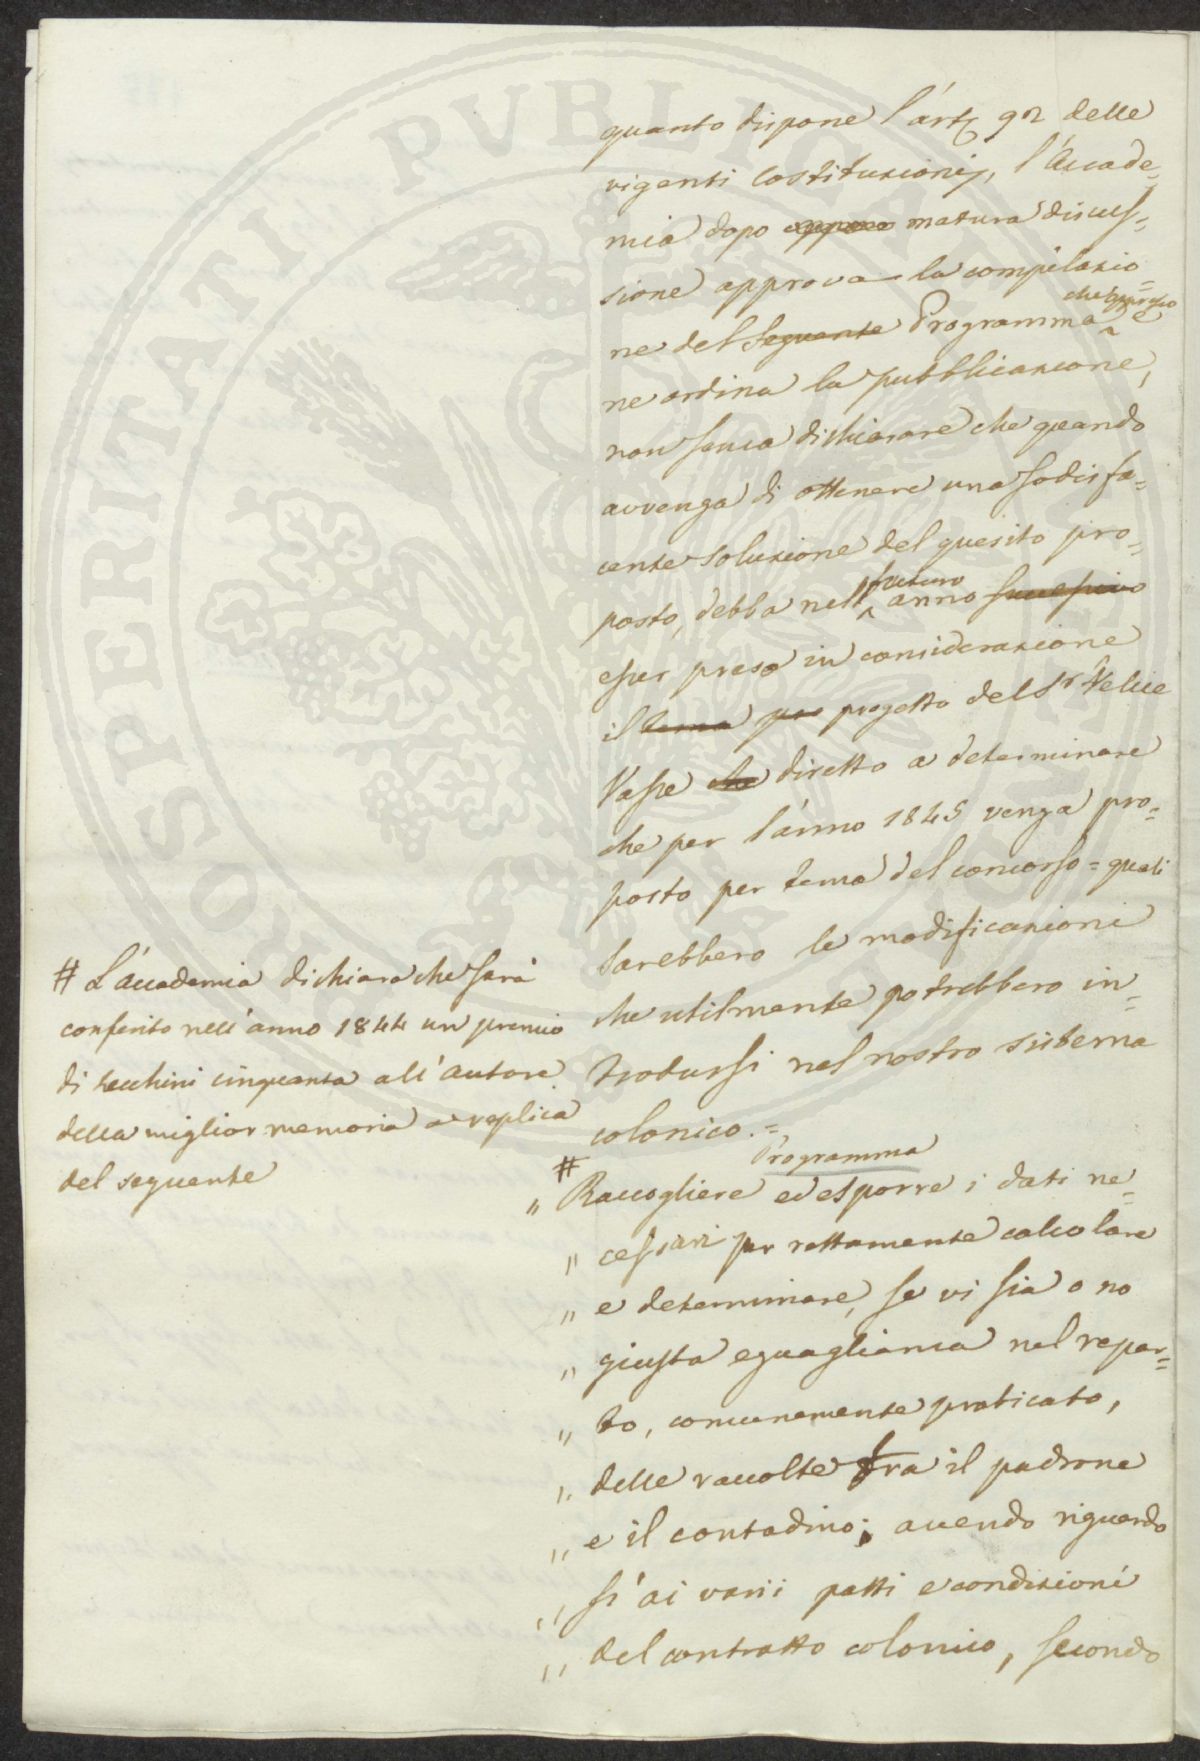 quanto dispone l'art. 92 delle
vigenti Costituzioni, l'Accade=
mia dopo matura discus=
sione approva la compilazio=
ne del Seguente Programma che appresso e
ne ordina la pubblicazione,
non senza dichiarare che quando
avvenga di ottenere una sodisfa=
cente soluzione del quesito pro=
posto, debba nell' futuro anno successivo
esser preso in considerazione
il tema pro progetto del Sr. Felice
Vasse che diretto a determinare
che per l'anno 1845 venga pro=
posto per tema del concorso = quali
sarebbero le modificazioni
che utilmente potrebbero in=
trodursi nel nostro sistema
colonico. =
# L'accademia dichiara che sarà
conferito nell'anno 1844 un premio
di zecchini cinquanta all'autore
della miglior memoria a replica
del seguente
Programma
#
" Raccogliere ed esporre i dati ne=
" cessari per rettamente calcolare
" e determinare, se vi sia o no
" giusta eguaglianza nel repar=
" to, comunemente praticato,
" delle raccolte fra il padrone
" e il contadino; avendo riguardo
" sì ai varii patti e condizioni
" del contratto colonico, secondo
PROSPERITATI PVBLICAE